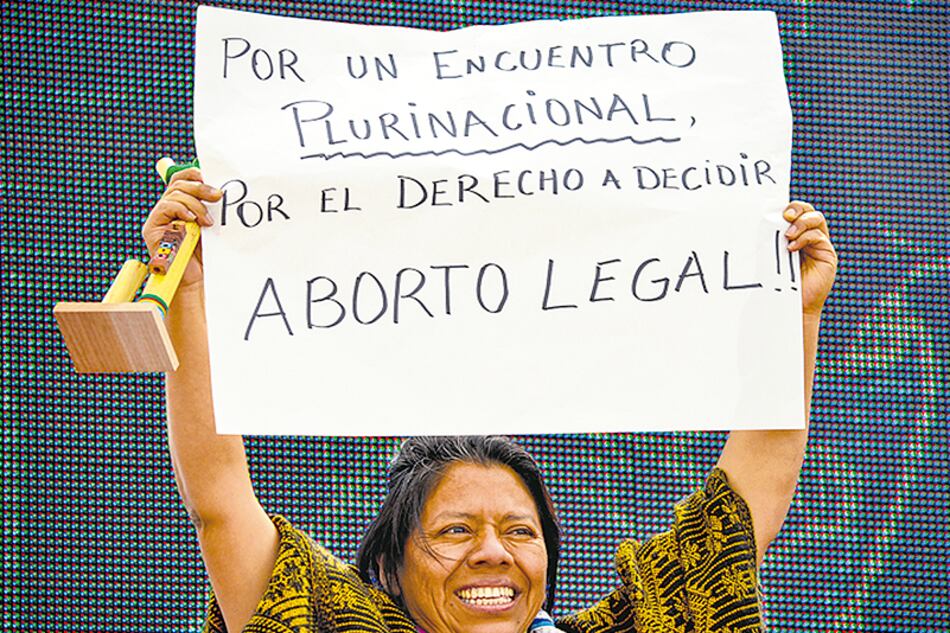 POR UN ENCUENTRO
PLURINACIONAL,
POR EL DERECHO A DECIDIR
ABORTO LEGAL!!